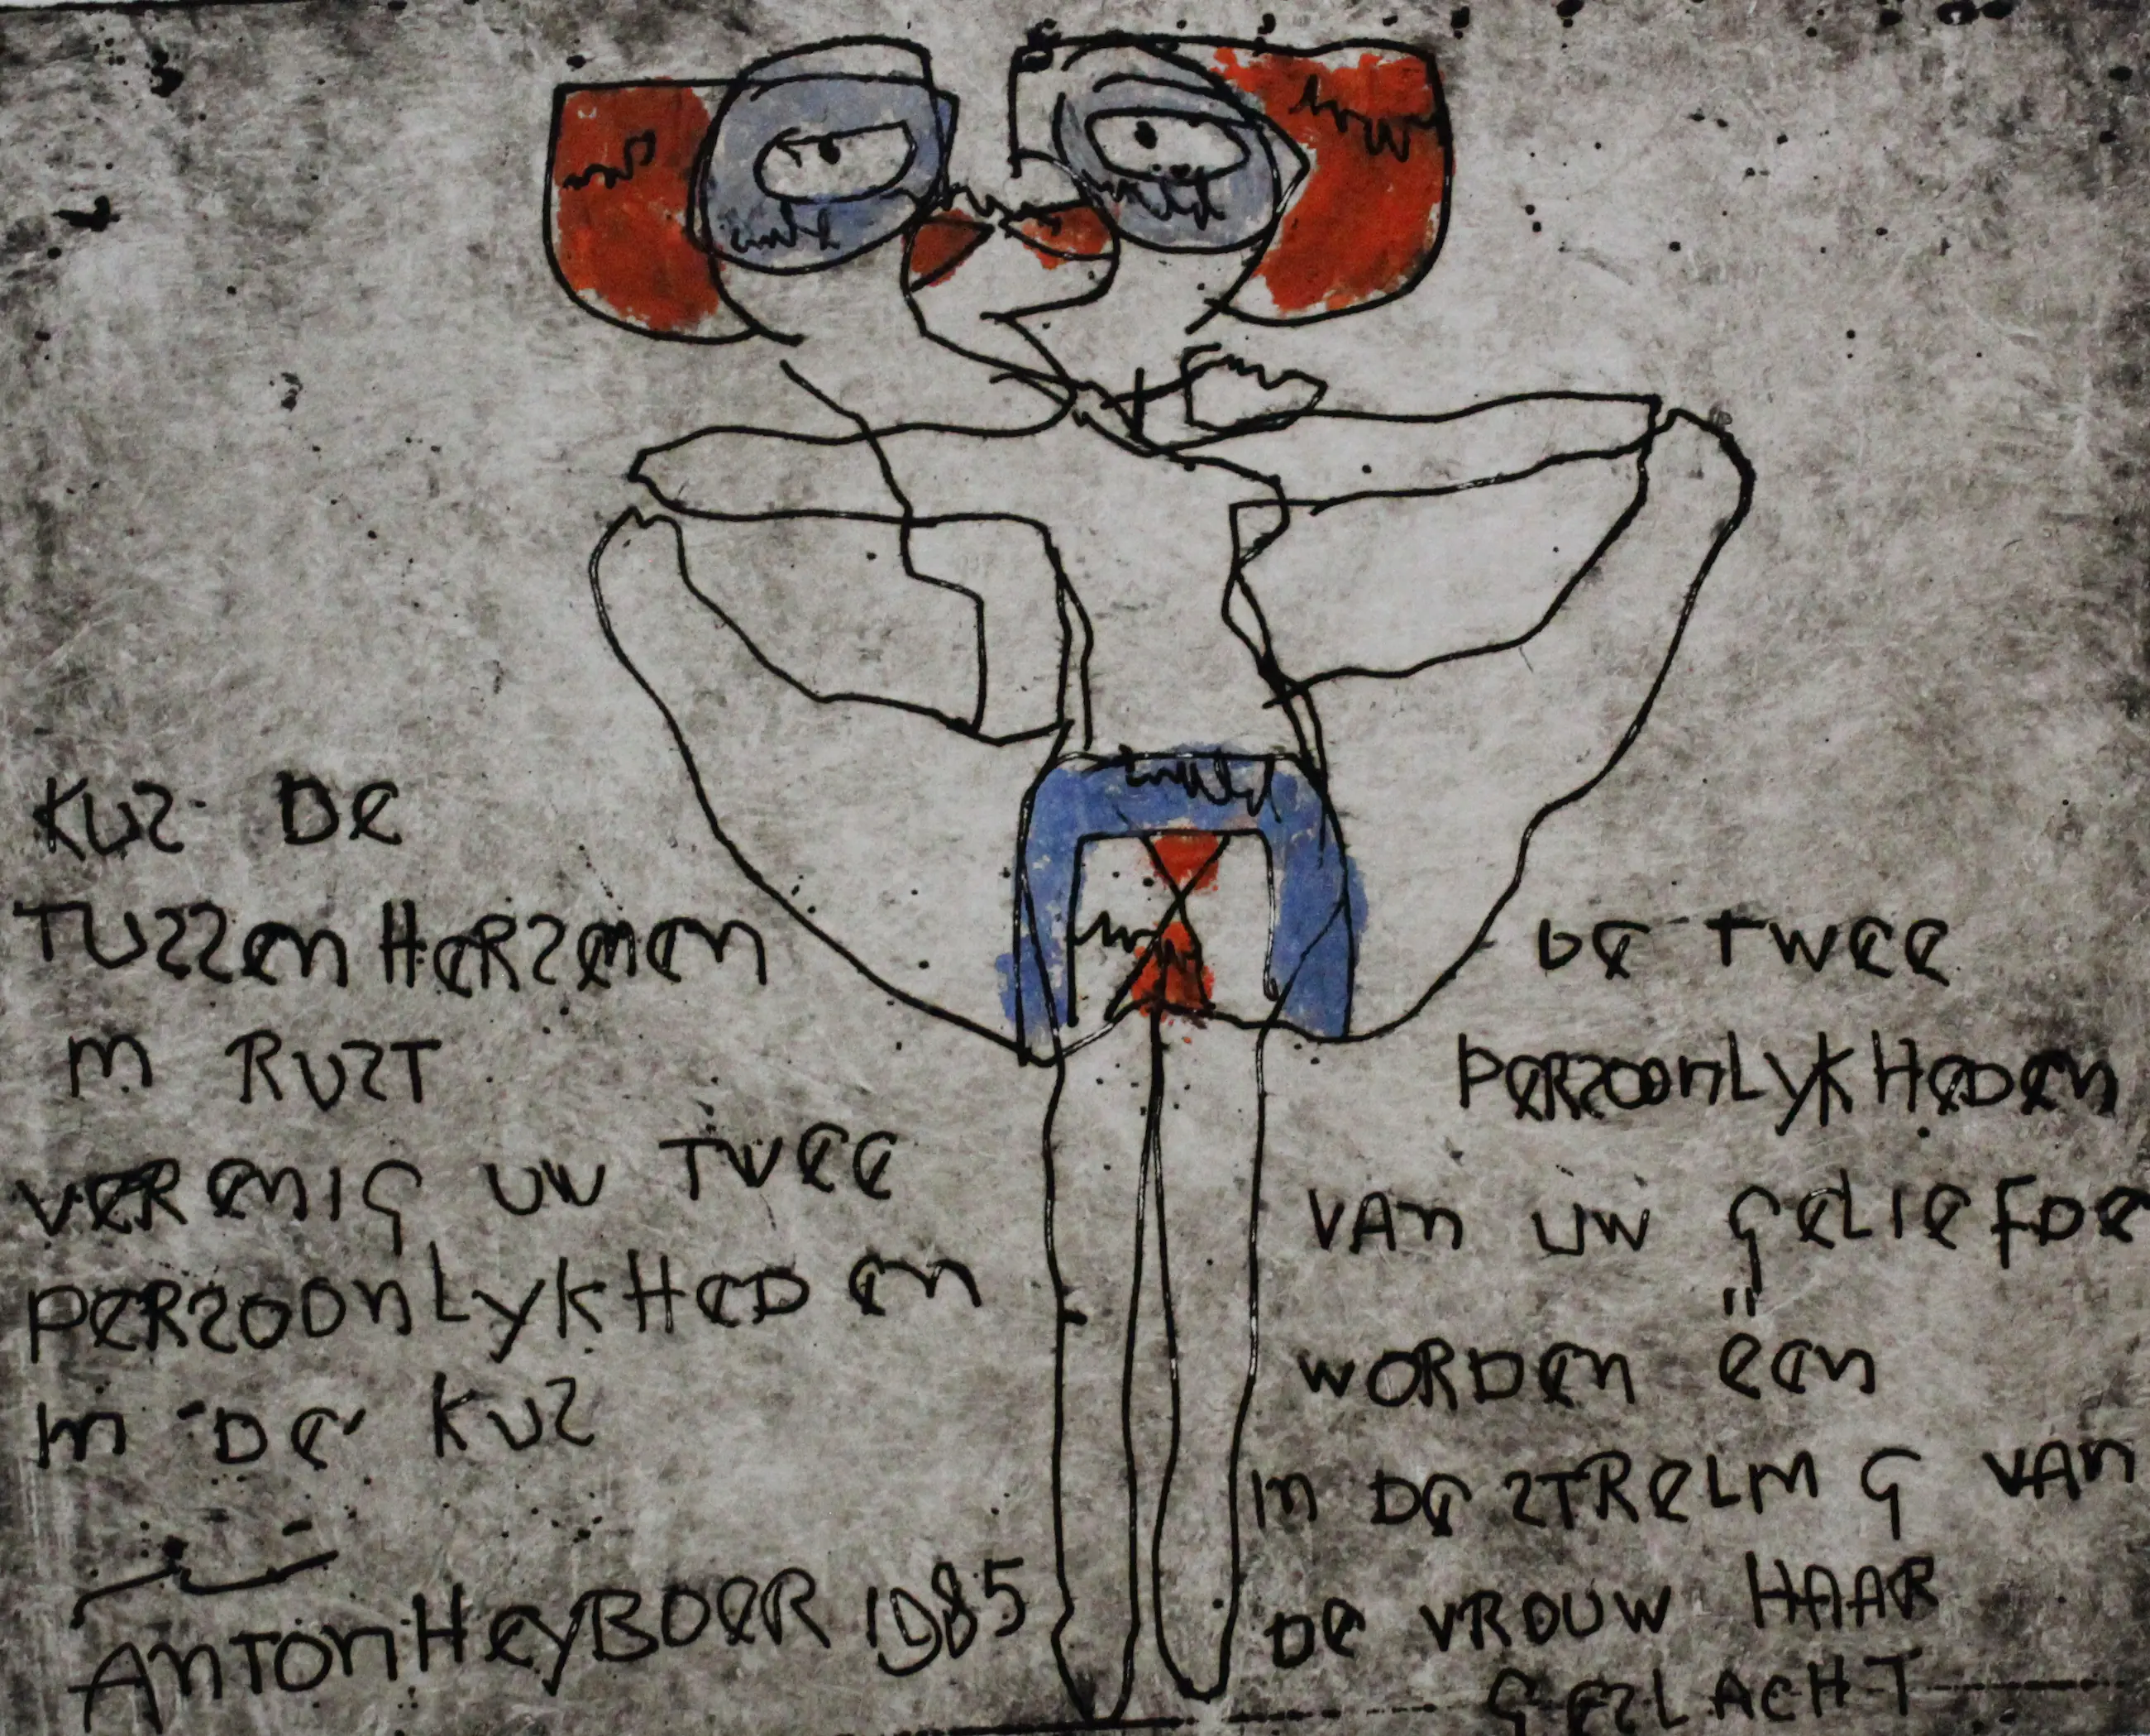 KUS DE
TUSSEN HERSENEN
IN RUST
VERENIG UW TWEE
PERSOONLYKHEDEN
IN DE KUS
ANTON HEYBOER 1985
DE TWEE
PERSOONLYKHEDEN
VAN UW GELIEFDE
WORDEN ëEN
IN DE STRELING VAN
DE VROUW HAAR
GESLACHT